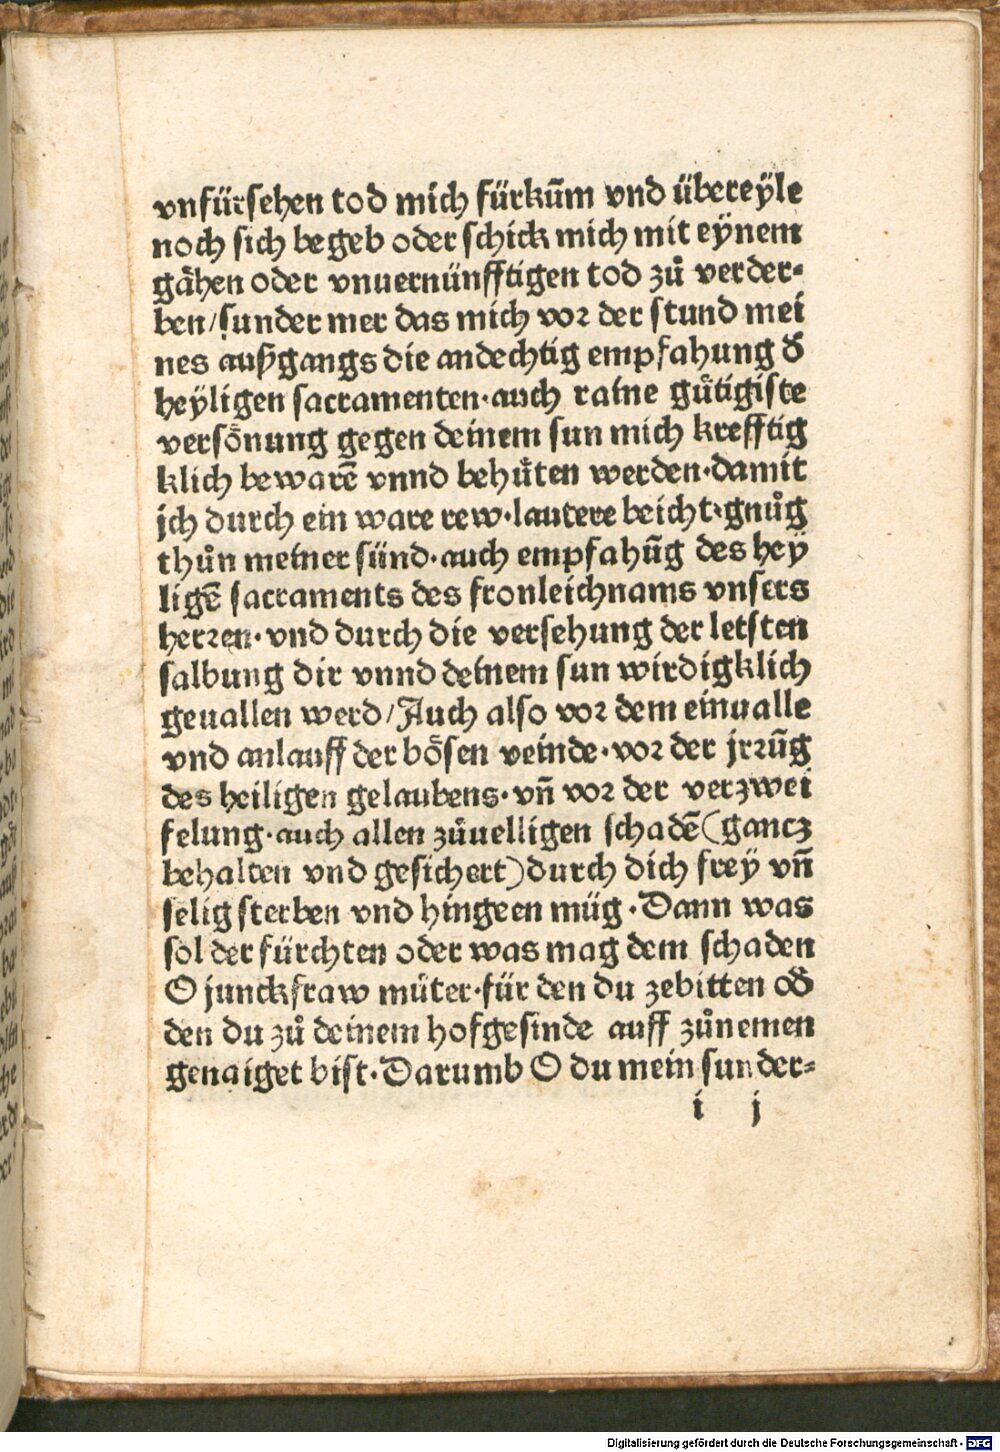 vnfürsehen tod mich fürkūm vnd übereÿle
noch sich begeb oder schick mich mit eÿnem
gähen oder vnuernünfftigen tod zů verder⸗
ben/sunder mer das mich voꝛ der stund mei
nes außgangs die andechtig empfahung d̄
heÿligen sacramenten·auch raine gůtigiste
versönung gegen deinem sun mich krefftig
klich bewarē vnnd behůten werden·damit
jch durch ein ware rew·lautere beicht·gnůg
thůn meiner sünd·auch empfahūg des heÿ
ligē sacraments des fronleichnams vnsers
herꝛen·vnd durch die versehung der letsten
salbung dir vnnd deinem sun wirdigklich
geuallen werd/Auch also voꝛ dem einualle
vnd anlauff der bösen veinde·voꝛ der jrꝛūg
des heiligen gelaubens·vn̄ voꝛ der verzwei
felung·auch allen zůuelligen schadē(gancz
behalten vnd gesichert)durch dich freÿ vn̄
selig sterben vnd hingeen müg·Dann was
sol der fürchten oder was mag dem schaden
O junckfraw müter·für den du zebitten od̄
den du zů deinem hofgesinde auff zůnemen
genaiget bist·Darumb O du mein sunder⸗
i j
Digitalisierung gefördert durch die Deutsche Forschungsgemeinschaft - DFG